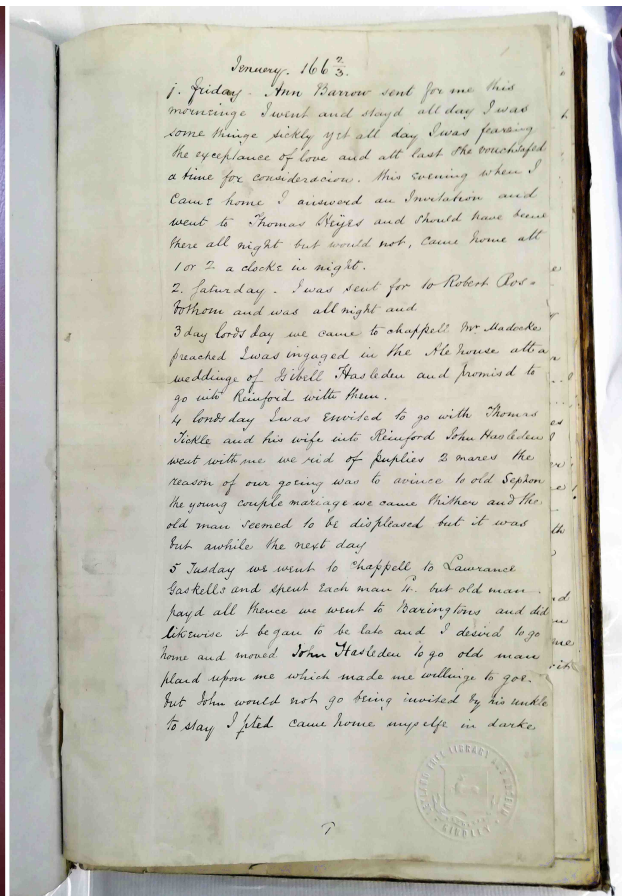 Jenuery. 166 2/3.
1. friday - Ann Barrow sent for me this
morneinge I went and stayd all day I was
some thinge sickly yet all day I was fearing
the exceptance of love and att last she vouchsafed
a time for consideracion. this evening when I
came home I answerd an Invitation and
went to Thomas Heyes and should have beene
there all night but would not, came home att
1 or 2 a clocke in night.
2. Saturday - I was sent for to Robert Ros=
bothom and was all night and
3 day lords day we came to chappell Mr Madocke
preached I was ingaged in the Ale house att a
weddinge of Gibell Hasleden and promisd to
go into Reinford with them.
4 londsday I was envited to go with Thomas
Tickle and his wife into Reinford John Hasleden
went with me we rid of puplies 2 mares the
reason of our goeing was to avince to old Sephon
the young couple mariage we came thither and the
old man seemed to be displeased but it was
but awhile the next day
5 Tusday we went to chappell to Lawrance
Gaskells and spent Each man 4. but old man
payd all thence we went to Baringtons and did
likewise it began to be late and I desird to go
home and moved John Hasleden to go old man
plaid upon me which made me willinge to goe.
but John would not go being invited by his unkle
to stay I pted came home myselfe in darke